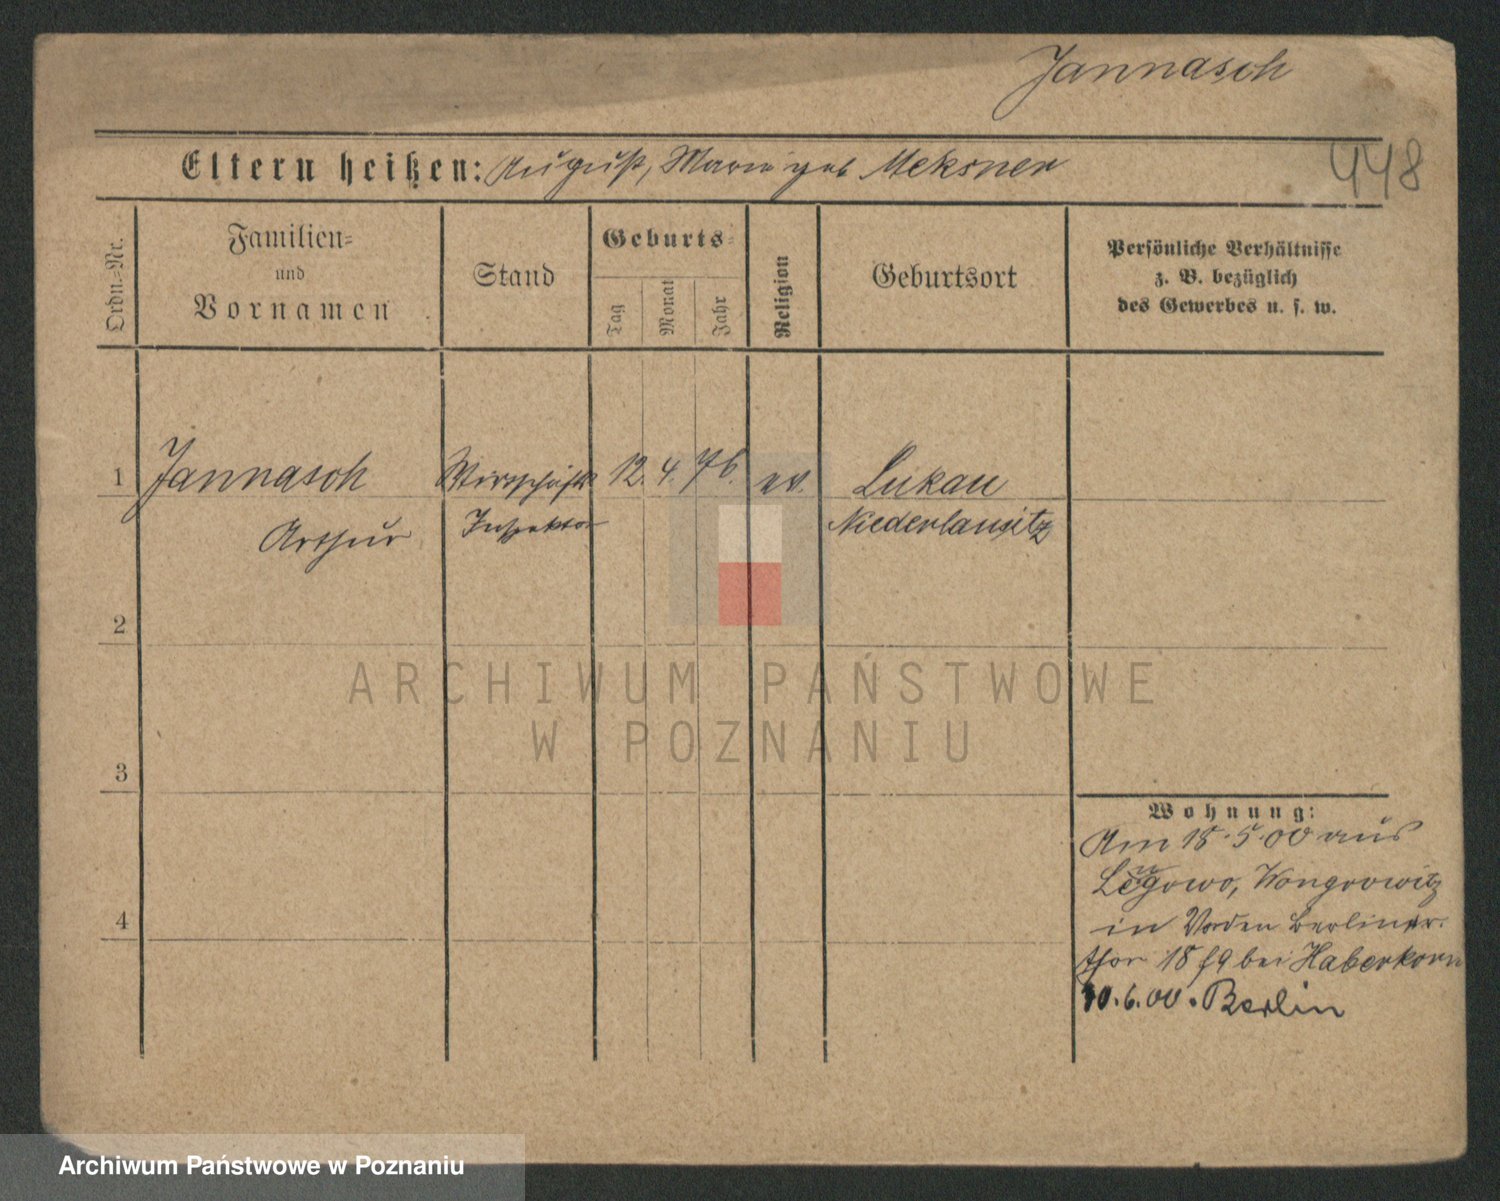 Jannasch
448
Eltern heißen: August, Marie geb Meksner
Ordn.=Nr.
Familien=
und
Vornamen
Stand
Geburts=
Tag
Monat
Jahr
Religion
Geburtsort
Persönliche Verhältnisse
z. B. bezüglich
des Gewerbes u. s. w.
1 Jannasch Wirtschafts 12. 4. 76. ev. Lukau
Arthur Inspektor Niederlausitz
2
ARCHIWUM PAŃSTWOWE
W POZNANIU
3
Wohnung:
Am 15.5.00 aus
Legowo, Wongrowitz
in Berliner
thor 18 bei Haberkorn
10.6.00. Berlin
4
Archiwum Państwowe w Poznaniu